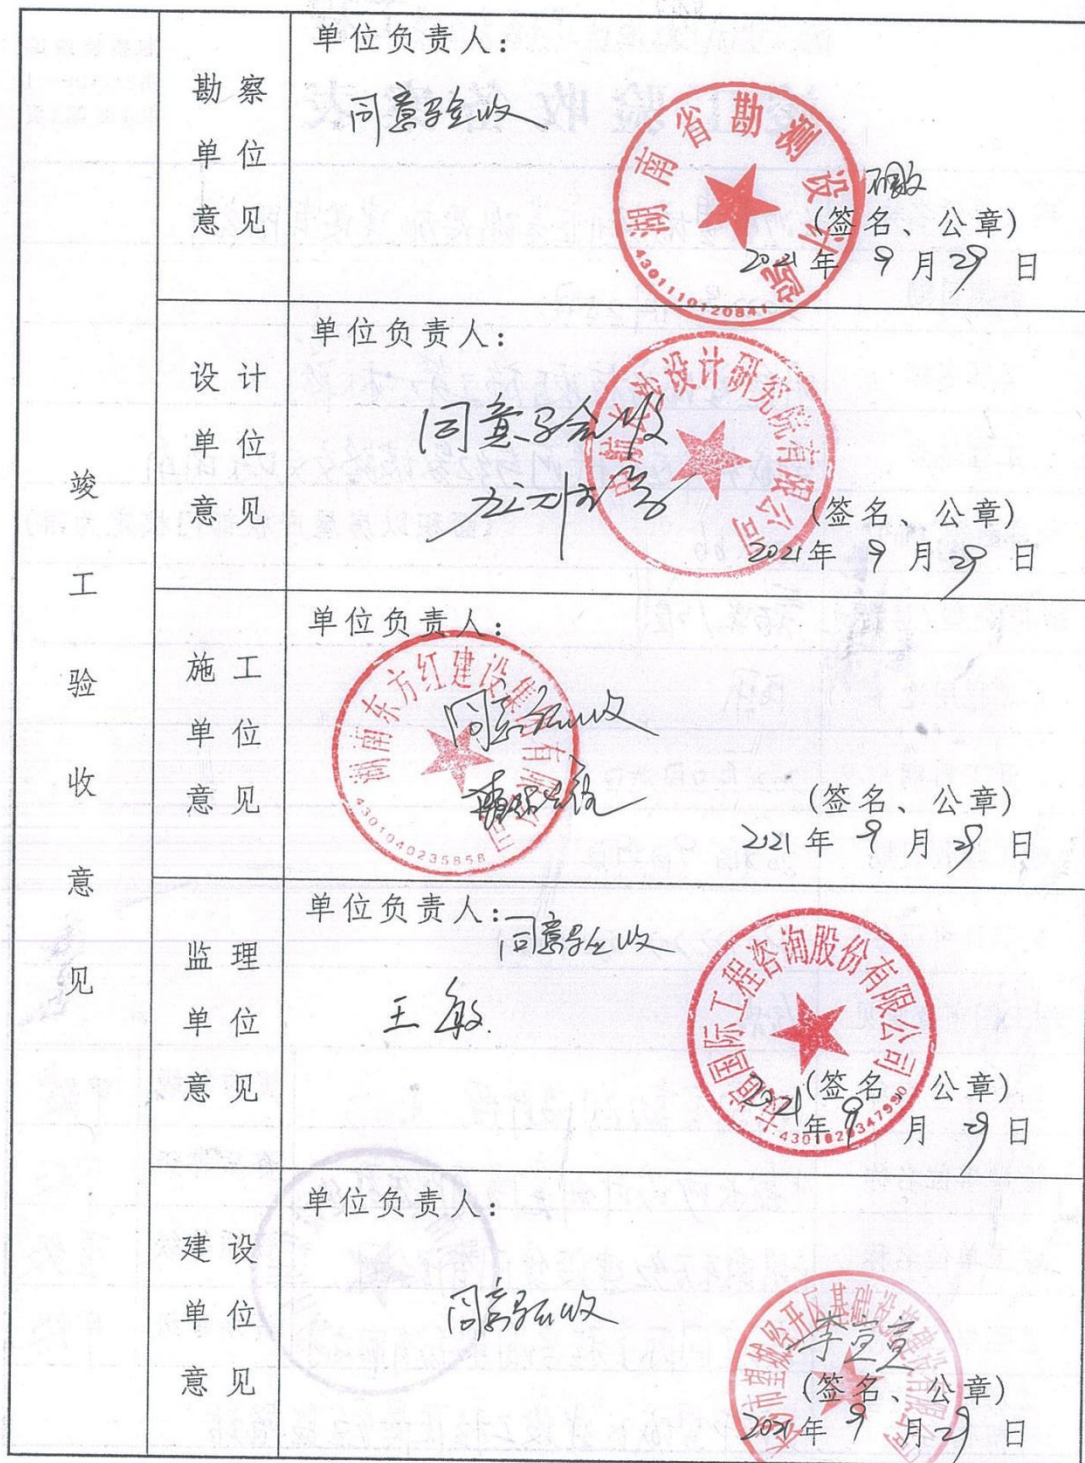 竣工验收意见
勘察单位意见
单位负责人:
同意验收
湖南省勘测设计院
4301110120841
(签名、公章)
2021年9月29日
设计单位意见
单位负责人:
同意验收
设计研究院有限公司
(签名、公章)
2021年9月29日
施工单位意见
单位负责人:
同意验收
湖南东方红建设集团有限公司
4301040235858
(签名、公章)
2021年9月29日
监理单位意见
单位负责人:
同意验收
王敏
友谊国际工程咨询股份有限公司
(签名、公章)
2021年9月29日
建设单位意见
单位负责人:
同意验收
市望城经开区基础设施建设有限公司
李萱萱
(签名、公章)
2021年9月29日